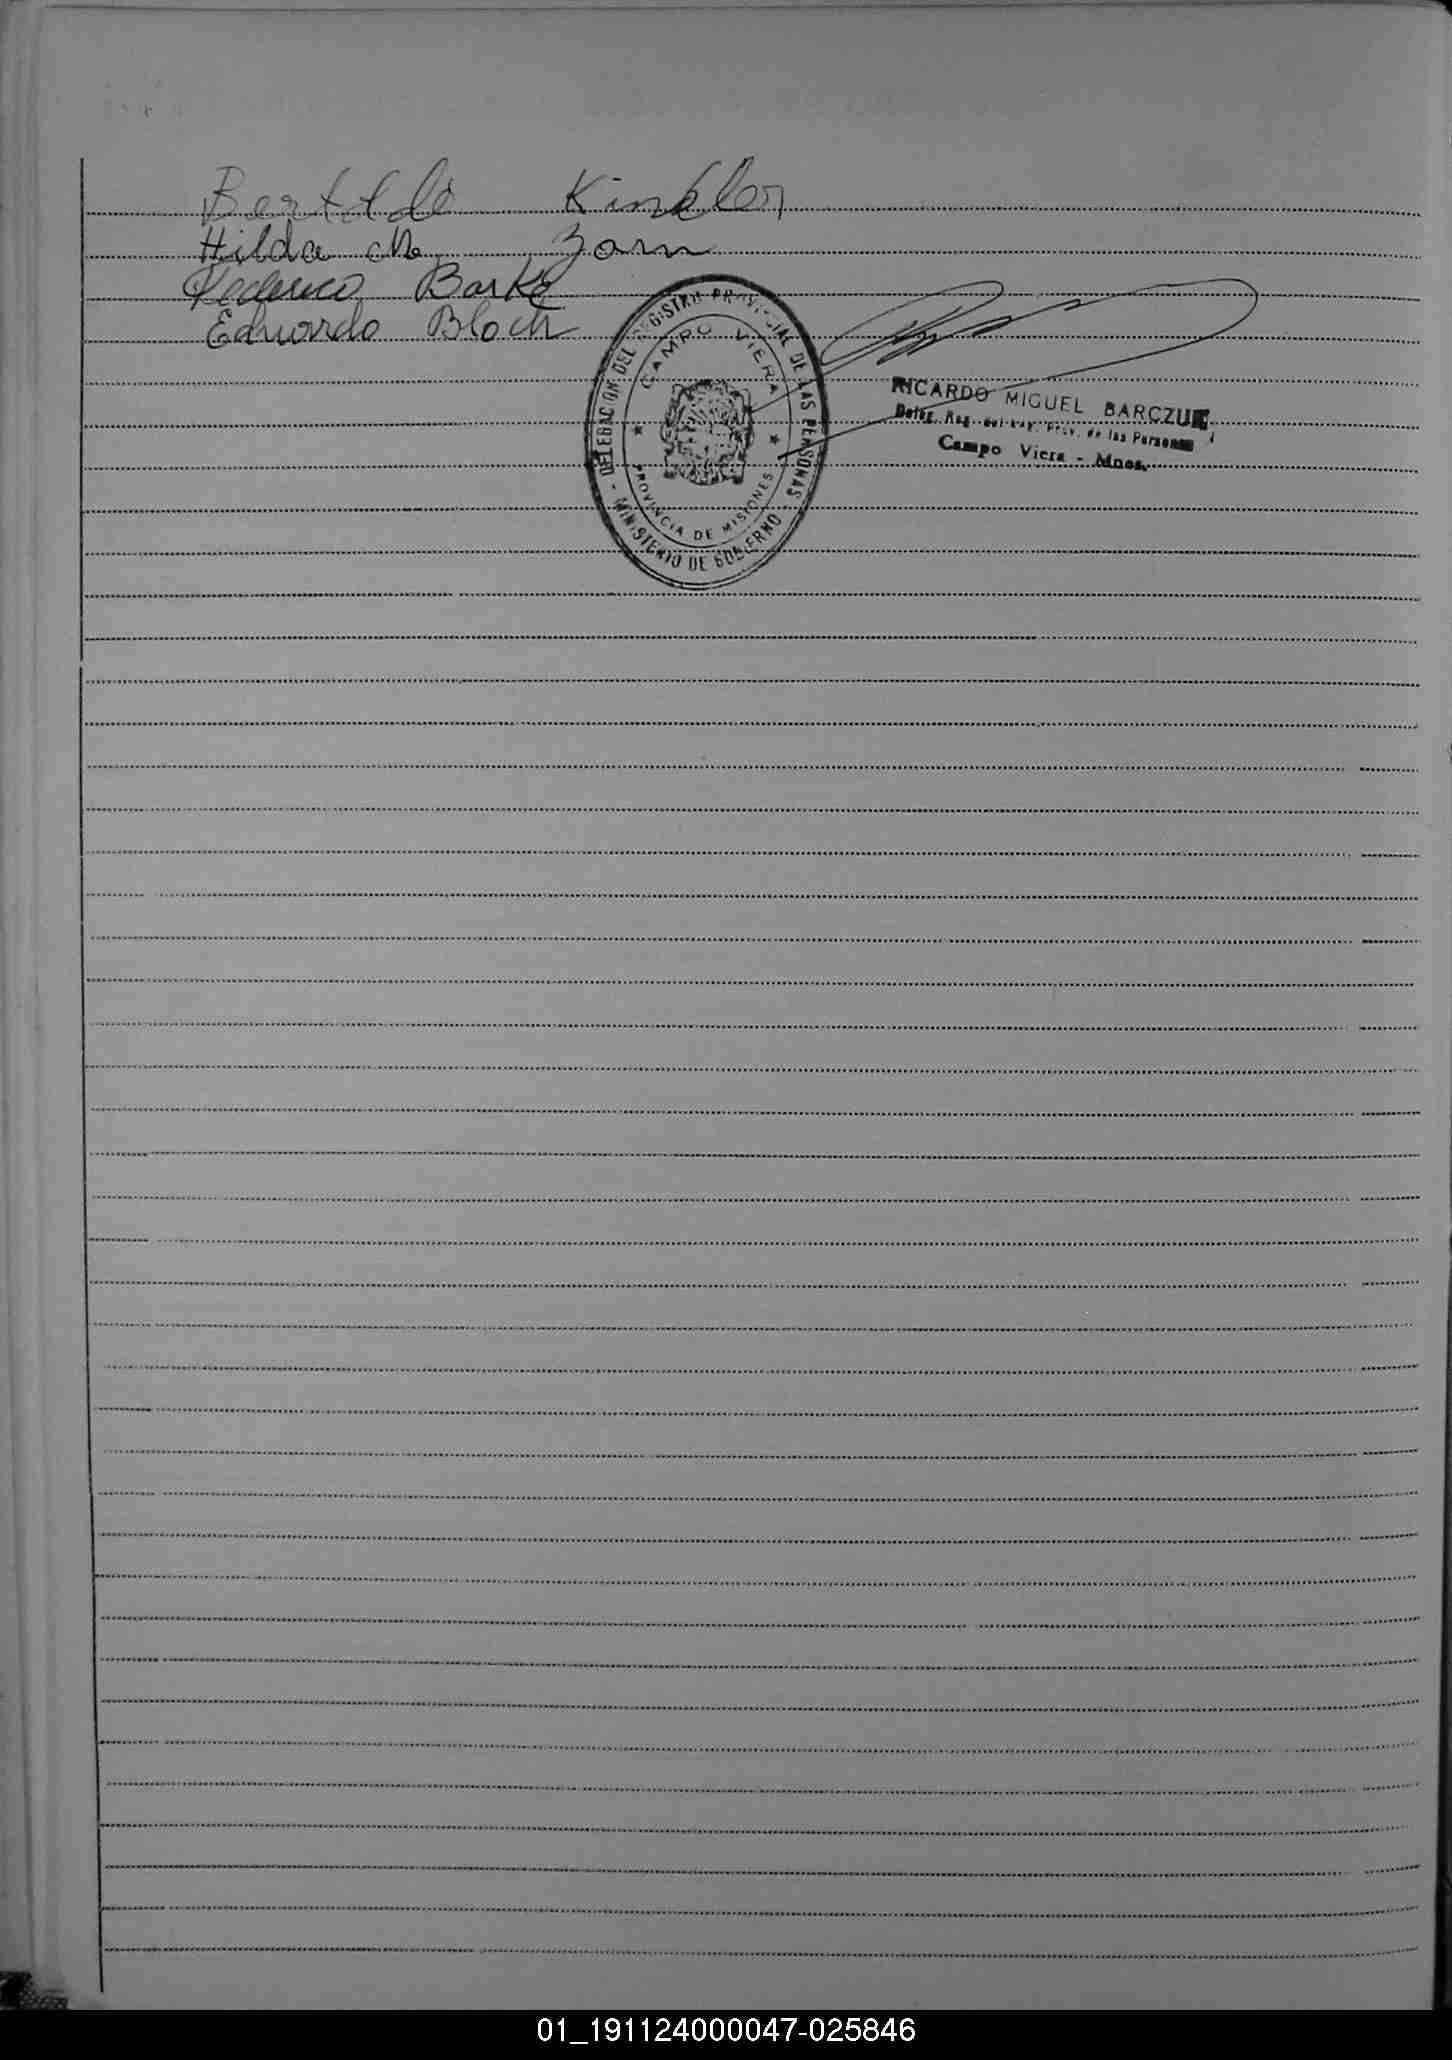 Bertoldo Kinkler
Hilda M. Zorn
Federico Barke
Eduardo Bloch
DELEGACION DEL REGISTRO PROVINCIAL DE LAS PERSONAS - MINISTERIO DE GOBIERNO -
CAMPO VIERA
PROVINCIA DE MISIONES
RICARDO MIGUEL BARCZUK
Deleg. Reg. Prov. de las Personas
Campo Viera - Mnes.
01_191124000047-025846